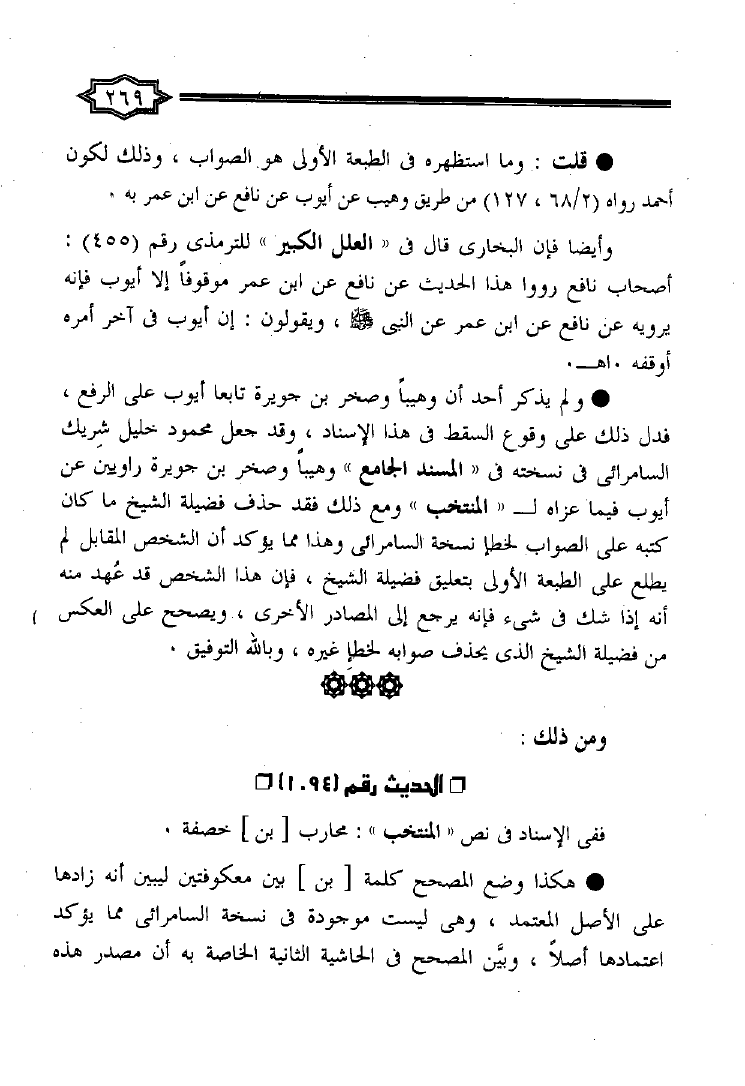 ٢٦٩
● قلت : وما استظهره فى الطبعة الأولى هو الصواب ، وذلك لكون
أحمد رواه (٦٨/٢ ، ١٢٧) من طريق وهيب عن أيوب عن نافع عن ابن عمر به ٠
وأيضا فإن البخارى قال فى « العلل الكبير » للترمذى رقم (٤٥٥) :
أصحاب نافع رووا هذا الحديث عن نافع عن ابن عمر موقوفاً إلا أيوب فإنه
يرويه عن نافع عن ابن عمر عن النبى ﷺ ، ويقولون : إن أيوب فى آخر أمره
أوقفه ٠اهـ٠
● ولم يذكر أحد أن وهيباً وصخر بن جويرة تابعا أيوب على الرفع ،
فدل ذلك على وقوع السقط فى هذا الإسناد ، وقد جعل محمود خليل شريك
السامرائى فى نسخته فى « المسند الجامع » وهيباً وصخر بن جويرة راويين عن
أيوب فيما عزاه لـ « المنتخب » ومع ذلك فقد حذف فضيلة الشيخ ما كان
كتبه على الصواب لخطإ نسخة السامرائى وهذا مما يؤكد أن الشخص المقابل لم
يطلع على الطبعة الأولى بتعليق فضيلة الشيخ ، فإن هذا الشخص قد عُهد منه
أنه إذا شك فى شىء فإنه يرجع إلى المصادر الأخرى ، ويصحح على العكس
من فضيلة الشيخ الذى يحذف صوابه لخطإ غيره ، وبالله التوفيق ٠
ومن ذلك :
❒ الحديث رقم (١٠٩٤) ❒
ففى الإسناد فى نص « المنتخب » : محارب [ بن ] خصفة ٠
● هكذا وضع المصحح كلمة [ بن ] بين معكوفتين ليبين أنه زادها
على الأصل المعتمد ، وهى ليست موجودة فى نسخة السامرائى مما يؤكد
اعتمادها أصلاً ، وبيَّن المصحح فى الحاشية الثانية الخاصة به أن مصدر هذه